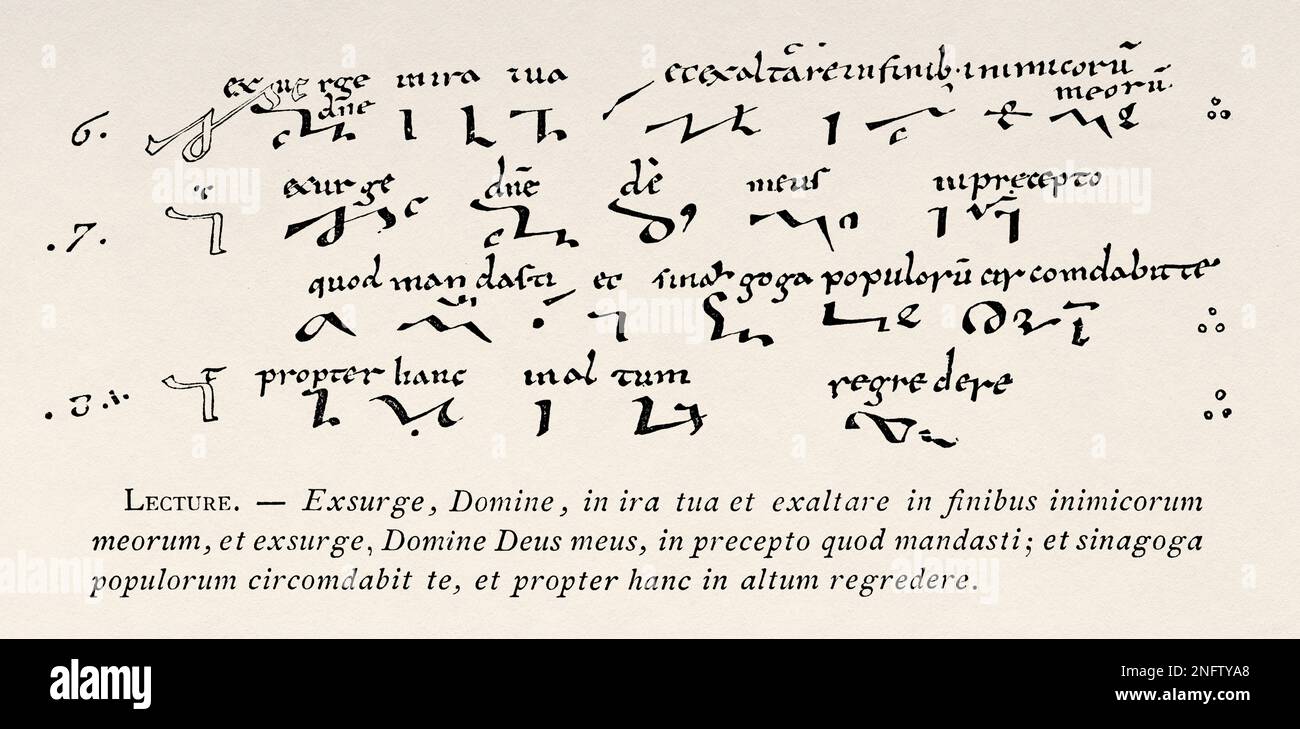 6. exsurge dn̄e in ira tua et exaltare in finib· inimicorū meorū
.7. exurge dn̄e dē meus in precepto
quod mandasti et sinagoga populorū circomdabit te
.8. propter hanc in altum regredere
LECTURE. — Exsurge, Domine, in ira tua et exaltare in finibus inimicorum
meorum, et exsurge, Domine Deus meus, in precepto quod mandasti; et sinagoga
populorum circomdabit te, et propter hanc in altum regredere.
alamy
Image ID: 2NFTYA8
www.alamy.com